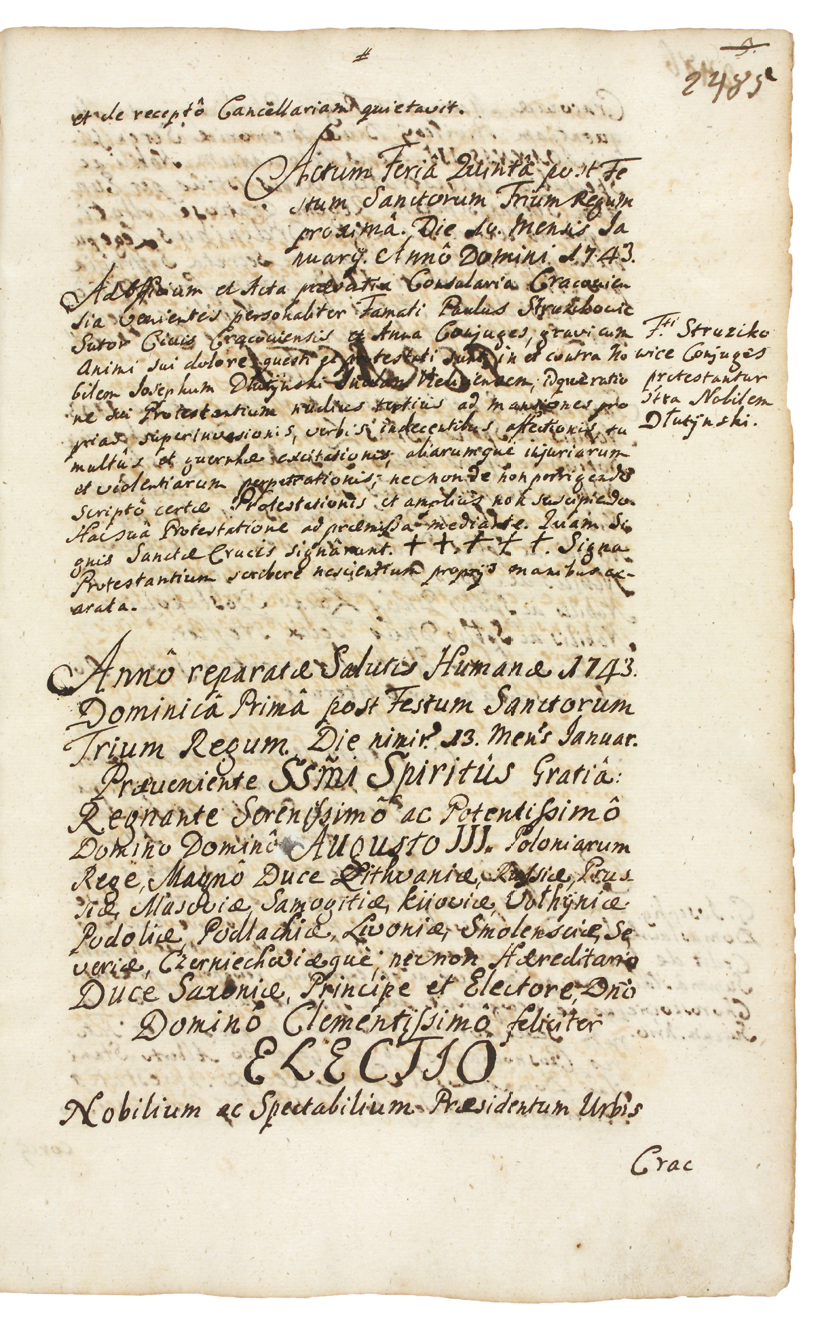 #
3.
2485
et de receptô Cancellariam quietavit.
Actum Feriâ Quintâ post Fe
stum Sanctorum Trium Regum
proximâ. Die 10. Mensis Ja
nuarÿ. Annô Domini 1743.
Ad Officium et Acta præsentia Consularia Cracovien
sia Venientes personaliter Famati Paulus Struzikowic
Sutor Civis Cracoviensis et Anna Conjuges, gravi cum
Animi sui dolore questi et protestati sunt in et contra No
bilem Josephum Dłutÿnski idque ratio
ne sui Protestantium nudius tertius ad mansiones pro
prias superinvasionis, verbis indecentibus affectionis, tu
multûs et guerrhæ excitationis, aliarumque injuriarum
et violentiarum perpetrationis; necnon de non porrigendo
Scriptô certæ Protestationis et amplius non suscipiendo.
Hac suâ Protestatione ad præmissa mediante. Quam Si
gnis Sanctæ Crucis signârunt. + + + + +. Signa
Protestantium scribere nescientium proprÿs manibus ex-
arata.
F.ti Struziko
wice Conjuges
protestantur
ctra Nobilem
Dłutÿnski.
Annô reparatæ Salutis Humanæ 1743.
Dominicâ Primâ post Festum Sanctorum
Trium Regum. Die nimir. 13. Mens Januar.
Præveniente SSmi Spiritûs Gratiâ:
Regnante Serenissimô ac Potentissimô
Domino Dominô Augusto III. Poloniarum
Rege, Magnô Duce Lithvaniæ, Russiæ, Prus
siæ, Masoviæ, Samogitiæ, Kijoviæ, Volhÿniæ
Podoliæ, Podlachiæ, Livoniæ, Smolensciæ, Se
veriæ, Czerniechoviæque; necnon Hæreditario
Duce Saxoniæ, Principe et Electore, Dno
Dominô Clementissimô feliciter
ELECTIO
Nobilium ac Spectabilium Præsidentum Urbis
Crac